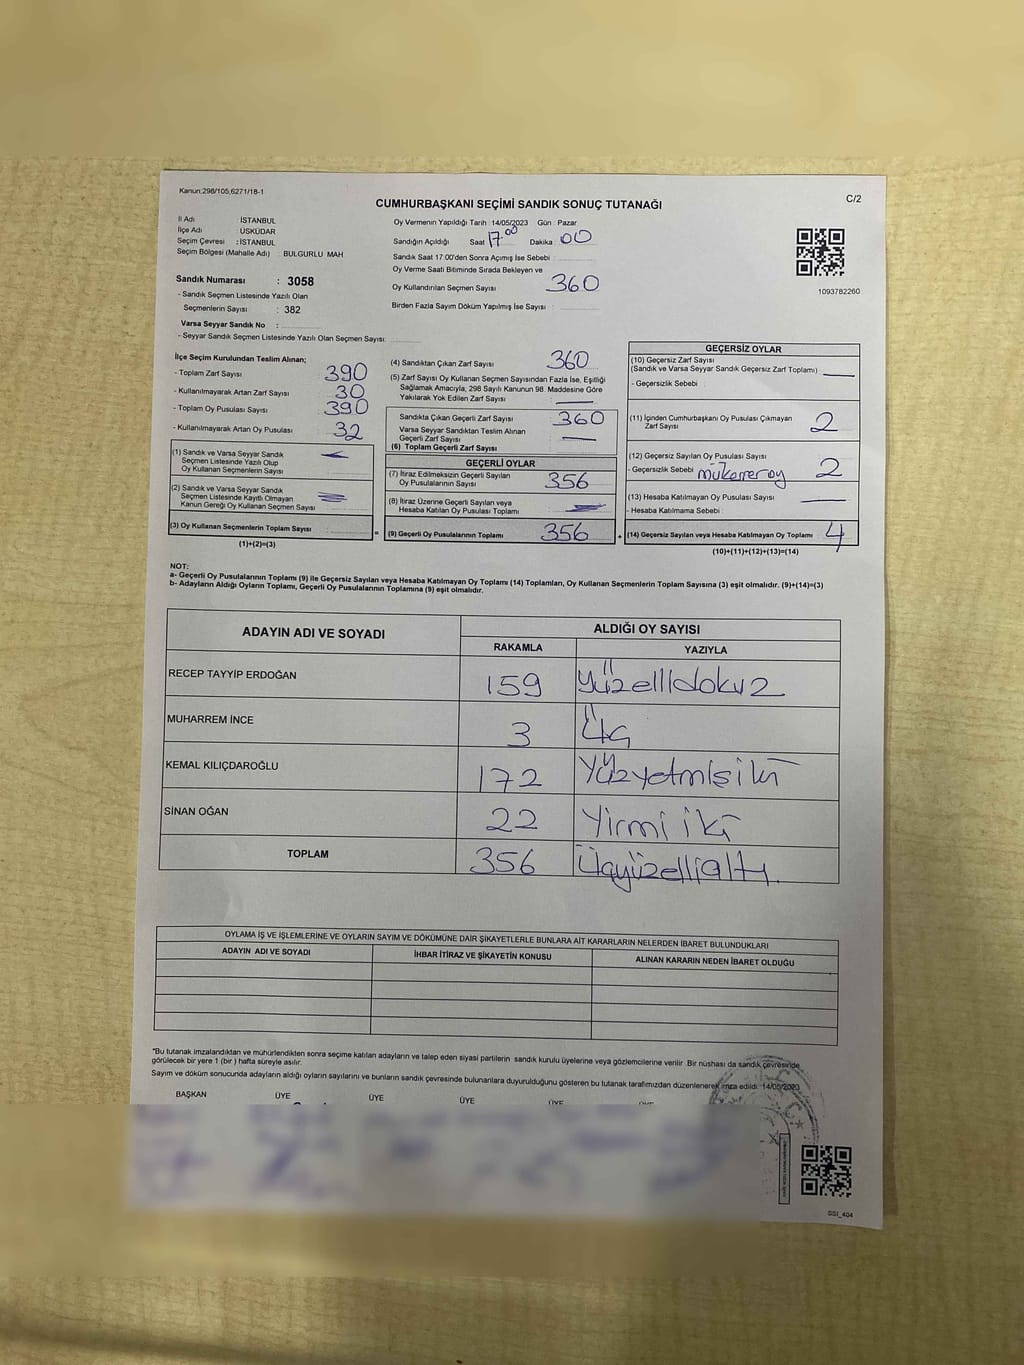 Kanun:298/105,6271/18-1
CUMHURBAŞKANI SEÇİMİ SANDIK SONUÇ TUTANAĞI
C/2
İl Adı İSTANBUL
İlçe Adı ÜSKÜDAR
Seçim Çevresi : İSTANBUL
Seçim Bölgesi (Mahalle Adı) BULGURLU MAH
Sandık Numarası : 3058
- Sandık Seçmen Listesinde Yazılı Olan
Seçmenlerin Sayısı : 382
Varsa Seyyar Sandık No :
- Seyyar Sandık Seçmen Listesinde Yazılı Olan Seçmen Sayısı:
Oy Vermenin Yapıldığı Tarih : 14/05/2023 Gün : Pazar
Sandığın Açıldığı Saat 17 00 Dakika : 00
Sandık Saat 17:00'den Sonra Açımış İse Sebebi :
Oy Verme Saati Bitiminde Sırada Bekleyen ve
Oy Kullandırılan Seçmen Sayısı 360
Birden Fazla Sayım Döküm Yapılmış İse Sayısı :
1093782260
İlçe Seçim Kurulundan Teslim Alınan;
- Toplam Zarf Sayısı 390
- Kullanılmayarak Artan Zarf Sayısı 30
- Toplam Oy Pusulası Sayısı 390
- Kullanılmayarak Artan Oy Pusulası 32
(1) Sandık ve Varsa Seyyar Sandık
Seçmen Listesinde Yazılı Olup
Oy Kullanan Seçmenlerin Sayısı
(2) Sandık ve Varsa Seyyar Sandık
Seçmen Listesinde Kayıtlı Olmayan
Kanun Gereği Oy Kullanan Seçmen Sayısı
(3) Oy Kullanan Seçmenlerin Toplam Sayısı
(1)+(2)=(3)
(4) Sandıktan Çıkan Zarf Sayısı 360
(5) Zarf Sayısı Oy Kullanan Seçmen Sayısından Fazla İse, Eşitliği
Sağlamak Amacıyla, 298 Sayılı Kanunun 98. Maddesine Göre
Yakılarak Yok Edilen Zarf Sayısı :
Sandıkta Çıkan Geçerli Zarf Sayısı 360
Varsa Seyyar Sandıktan Teslim Alınan
Geçerli Zarf Sayısı
(6) Toplam Geçerli Zarf Sayısı
GEÇERLİ OYLAR
(7) İtiraz Edilmeksizin Geçerli Sayılan
Oy Pusulalarının Sayısı 356
(8) İtiraz Üzerine Geçerli Sayılan veya
Hesaba Katılan Oy Pusulası Toplamı
= (9) Geçerli Oy Pusulalarının Toplamı 356 +
GEÇERSİZ OYLAR
(10) Geçersiz Zarf Sayısı
(Sandık ve Varsa Seyyar Sandık Geçersiz Zarf Toplamı)
- Geçersizlik Sebebi :
(11) İçinden Cumhurbaşkanı Oy Pusulası Çıkmayan
Zarf Sayısı 2
(12) Geçersiz Sayılan Oy Pusulası Sayısı
- Geçersizlik Sebebi mükerrer oy 2
(13) Hesaba Katılmayan Oy Pusulası Sayısı
- Hesaba Katılmama Sebebi :
(14) Geçersiz Sayılan veya Hesaba Katılmayan Oy Toplamı 4
(10)+(11)+(12)+(13)=(14)
NOT:
a- Geçerli Oy Pusulalarının Toplamı (9) ile Geçersiz Sayılan veya Hesaba Katılmayan Oy Toplamı (14) Toplamları, Oy Kullanan Seçmenlerin Toplam Sayısına (3) eşit olmalıdır. (9)+(14)=(3)
b- Adayların Aldığı Oyların Toplamı, Geçerli Oy Pusulalarının Toplamına (9) eşit olmalıdır.
ADAYIN ADI VE SOYADI ALDIĞI OY SAYISI
RAKAMLA YAZIYLA
RECEP TAYYİP ERDOĞAN 159 Yüzellidokuz
MUHARREM İNCE 3 Üç
KEMAL KILIÇDAROĞLU 172 Yüzyetmişiki
SİNAN OĞAN 22 Yirmi iki
TOPLAM 356 Üçyüzellialtı.
OYLAMA İŞ VE İŞLEMLERİNE VE OYLARIN SAYIM VE DÖKÜMÜNE DAİR ŞİKAYETLERLE BUNLARA AİT KARARLARIN NELERDEN İBARET BULUNDUKLARI
ADAYIN ADI VE SOYADI İHBAR İTİRAZ VE ŞİKAYETİN KONUSU ALINAN KARARIN NEDEN İBARET OLDUĞU
*Bu tutanak imzalandıktan ve mühürlendikten sonra seçime katılan adayların ve talep eden siyasi partilerin sandık kurulu üyelerine veya gözlemcilerine verilir. Bir nüshası da sandık çevresinde
görülecek bir yere 1 (bir ) hafta süreyle asılır.
Sayım ve döküm sonucunda adayların aldığı oyların sayılarını ve bunların sandık çevresinde bulunanlara duyurulduğunu gösteren bu tutanak tarafımızdan düzenlenerek imza edildi. 14/05/2023
BAŞKAN ÜYE ÜYE ÜYE ÜYE
SSI_404